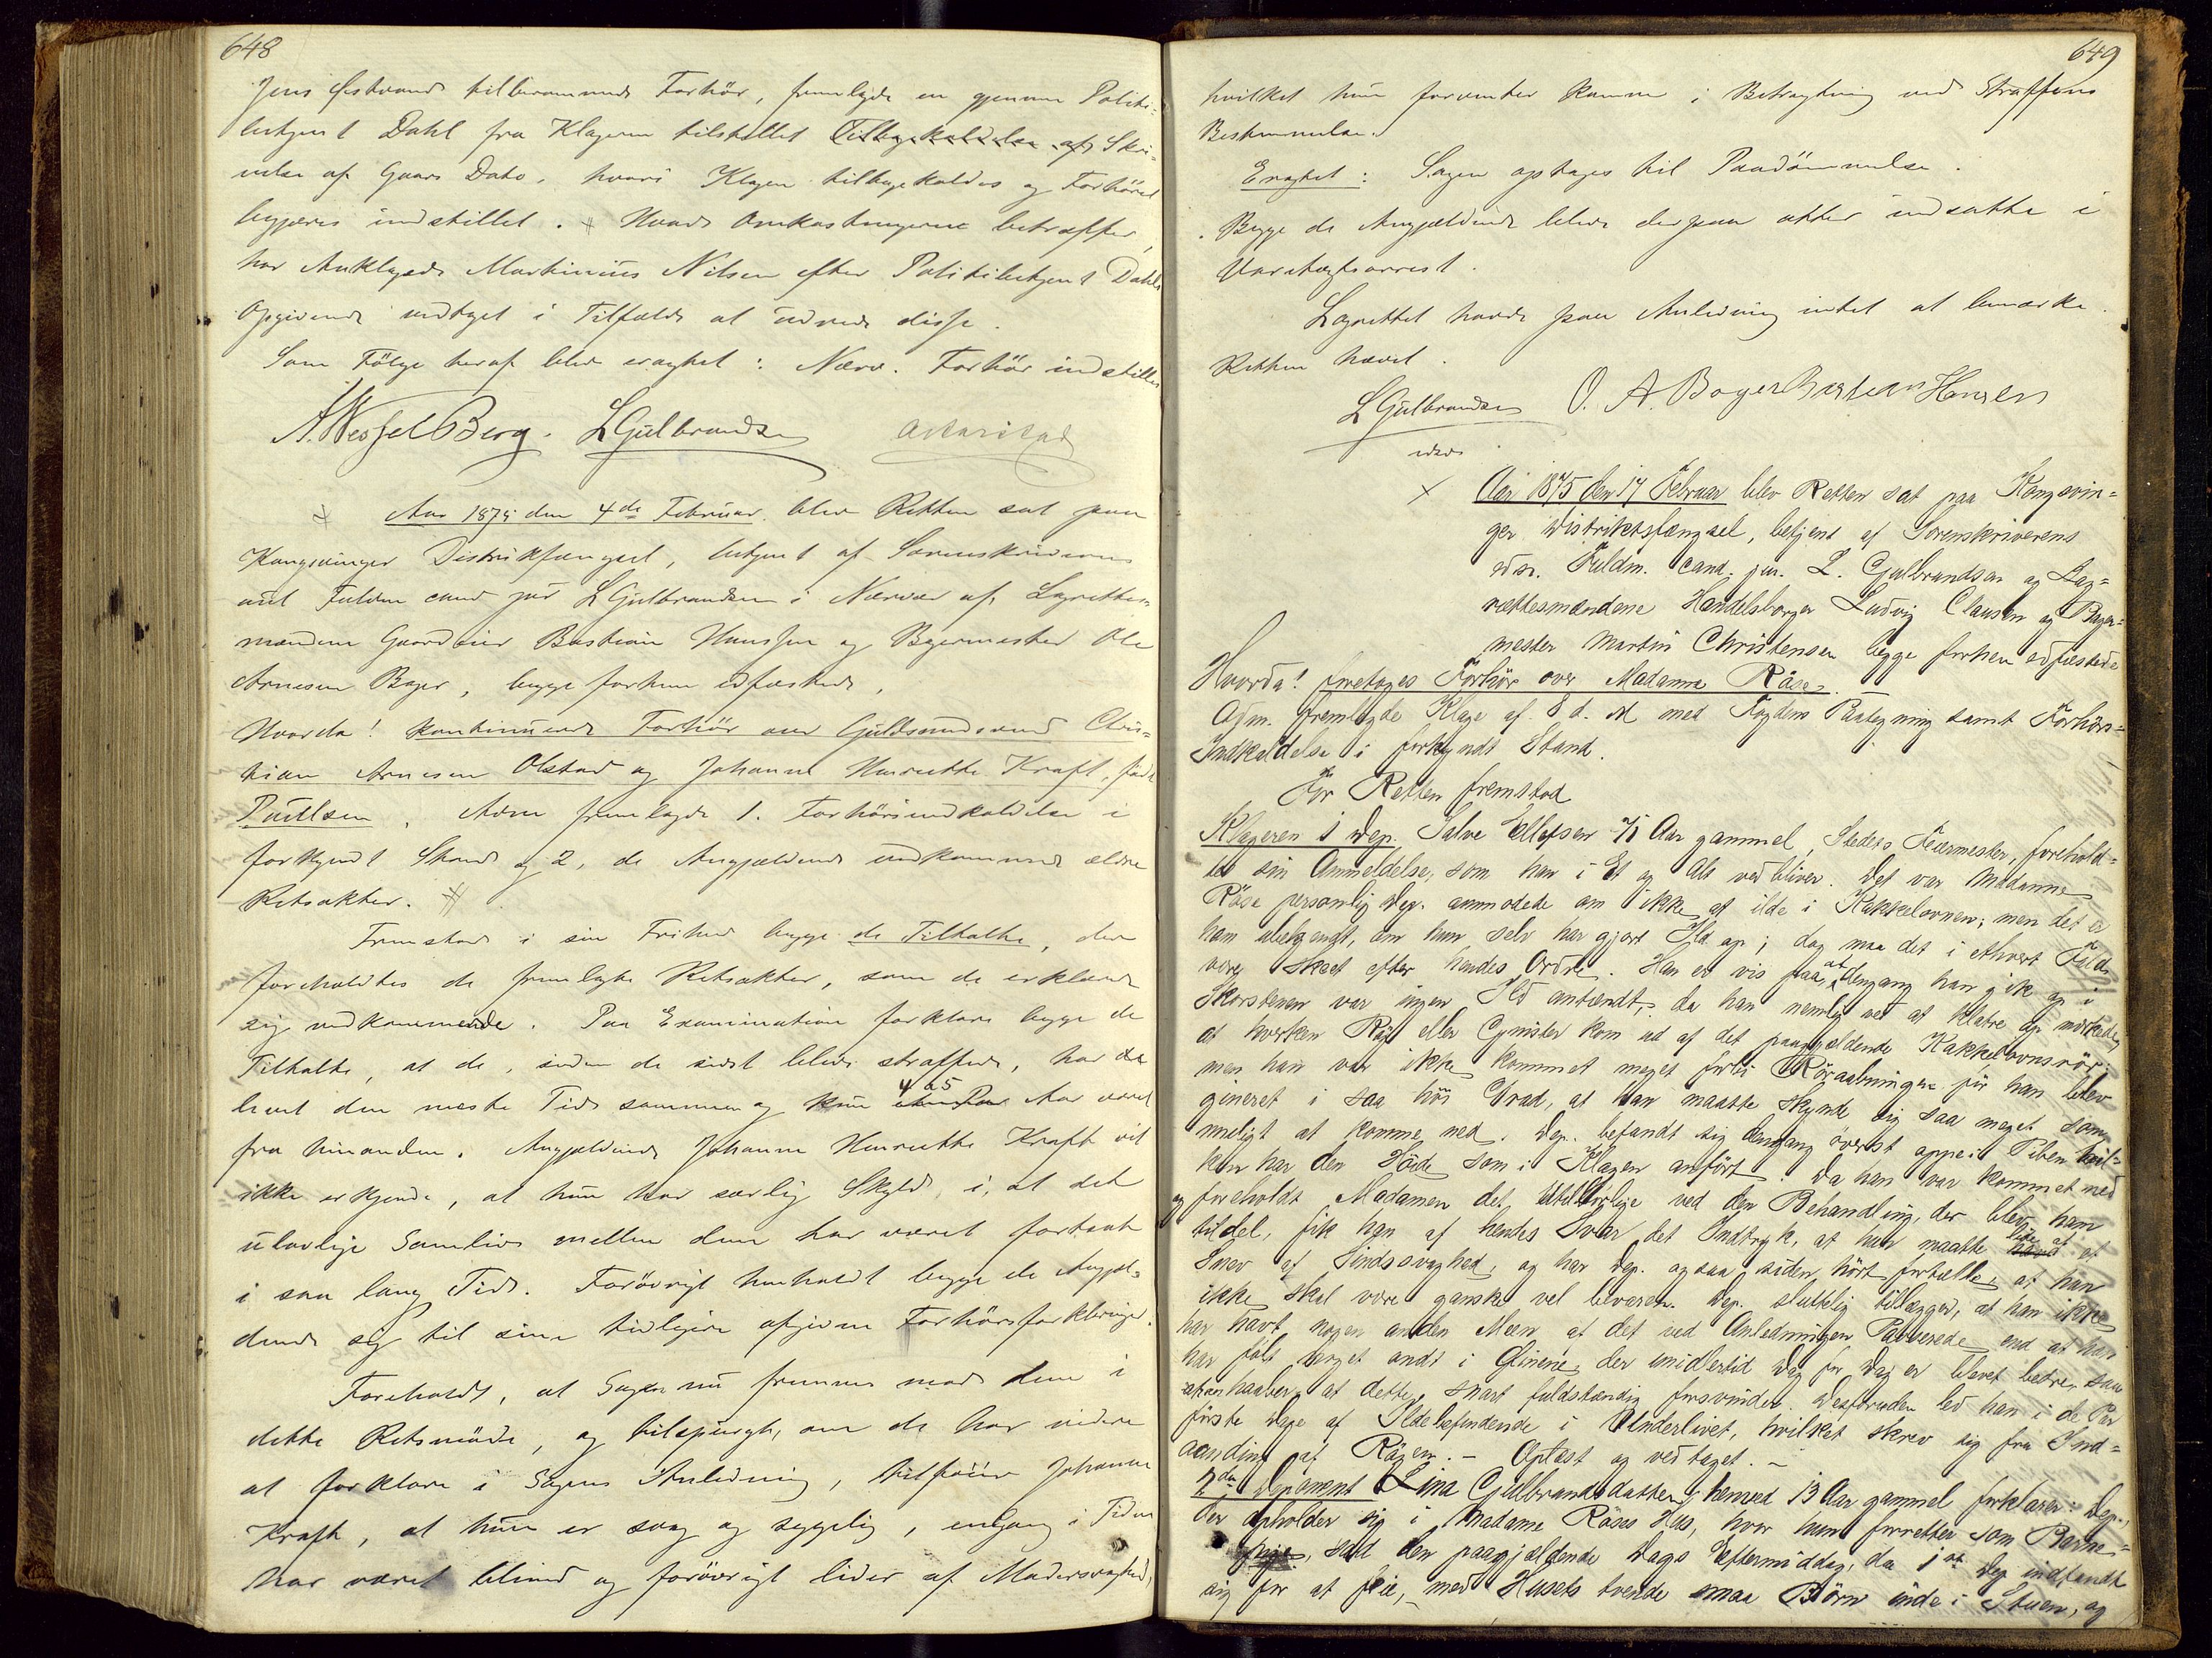 648
Jens Østvands tilberammede Forhör, fremlagde en gjennem Politi-
betjent Dahl fra Klageren tilstillet Tilbagekaldelse af Skri-
velse af Gaars Dato, hvori Klagen tilbagekaldes og Forhöret
begjæres indstillet. # Hvad Omkostningerne betræffer,
har Anklagede Martinius Nilsen efter Politibetjent Dahls
Opgivende vedtaget i Tilfælde at udrede disse.
Som Fölge heraf blev eragtet: Nærv. Forhör indstilles
A. Wessel Berg. L Gulbrandsen
# Aar 1875 den 4de Februar blev Retten sat paa
Kongsvinger Distriktsfængsel, betjent af Sorenskriverens
aut Fuldm cand jur L Gulbrandsen i Nærvær af Lagrettes-
mændene Gaardeier Bastian Hanssen og Bagermester Ole
Arnesen Bager, begge forhen edfæstede,
Hvorda! kontinuerede Forhör over Guldsmedsvend Chris-
tian Arnesen Olstad og Johanne Henriette Kraft, född
Paulsen. Adm fremlagde 1. Forhörsindkaldelse i
forkyndt Stand og 2, de Angjældende vedkommende ældre
Retsakter. #
Fremstod i sin Frihed begge de Tiltalte, der
foreholdtes de fremlagte Retsakter, som de erklærede
sig vedkommende. Paa Examination forklare begge de
Tiltalte, at de, siden de sidst bleve straffede, har le
levet den meste Tid sammen og kun et Par 4 a 5 Aar været
fra hinanden. Angjældende Johanne Henriette Kraft vil
ikke erkjende, at hun har særlig Skyld i, at det
ulovlige Samliv mellem dem har været fortsat
i saa lang Tid. Forövrigt henholdt begge de Angjæl-
dende sig til sine tidligere afgivne Forhörsforklaringer.
Foreholdt, at Sagen nu fremmes mod dem i
dette Retsmöde, og tilspurgt, om de har videre
at forklare i Sagens Anledning, tilföier Johanne
Kraft, at hun er svag og sygelig, engang i Tiden
har været blind og forövrigt lider af Modersvaghed,
649
hvilket hun forventer kommer i Betragtning ved Straffens
Bestemmelse.
Eragtet: Sagen optages til Paadömmelse.
Begge de Angjældende bleve derpaa atter indsatte i
Varetægtsarrest.
Lagrettet havde paa Anledning intet at bemærke.
Retten hævet.
L Gulbrandsen O. A. Bager Bastian Hansen
edsv.
x Aar 1875 den 17 Februar blev Retten sat paa Kongsvin=
ger Distriktsfængsel, betjent af Sorenskriverens
edsv. Fuldm. cand. jur. L. Gulbrandsen og Lag=
rettesmændene Handelsborger Ludvig Clausen og Bager=
mester Martin Christensen begge forhen edfæstede
Hvorda! foretoges Forhör over Madamme Röse.
Adm. fremlagde Klage af 8 d. M med Fogdens Paategning samt Forhörs=
Indkaldelse i forkyndt Stand.
For Retten fremstod
Klageren 1 Dep. Salve Ellefsen 71 Aar gammel, Stedets Feiermester, forehold=
tes sin Anmeldelse, som han i Et og Alt vedbliver. Det var Madamme
Röse personlig Dep. anmodede om ikke at ilde i Kakkelovnen; men det er
ham ubekjendt, om hun selv har gjort Ild op; dog maa det i ethvert Fald
være skeet efter hendes Ordre. Han er vis paa, at dengang han gik op i
Skorstenen var ingen Ild antændt, da han nemlig ved at klatre op mærkede,
at hverken Røg eller Gnister kom ud af det paagjældende Kakkelovnsrör.
men han var ikke kommet meget forbi Röraabningen för han blev
generet i saa höi Grad, at han maatte skynde sig saa meget som
muligt at komme ned. Dep. befandt sig dengang överst oppe i Piben hvil=
ken har den Höide som i Klagen anfört. Da han var kommet ned
og foreholdt Madamen det Utilbörlige ved den Behandling, der blev ham
tildel, fik han af hendes Svar det Indtryk, at hun maatte have lide af et
Snev af Sindssvaghed, og har Dep. ogsaa siden hört fortælle, at hun
ikke skal være ganske vel bevaren. Dep. sluttelig tillægger, at han ikke
har havt nogen anden Meen af det ved Anledningen Passerede end at han
har fölt meget ondt i Öinene, der imidlertid Dag for Dag er blevet bedre, saa
at han haaber, at dette snart fuldstændig forsvinder. Desforuden led han i de Par
förste Dage af Ildebefindende i Underlivet, hvilket skrev sig fra Ind=
aanding af Rögen. — Oplæst og vedtaget. —
2den Deponent Lina Gulbrandsdatter, henved 13 Aar gammel forklarer: Dep.,
der opholder sig i Madame Röses Hus, hvor hun forretter som Barne=
pige, sad den paagjældende Dags Eftermiddag, da 1ste Dep indfandt
sig for at feie, med Husets tvende smaa Börn inde i Stuen, og